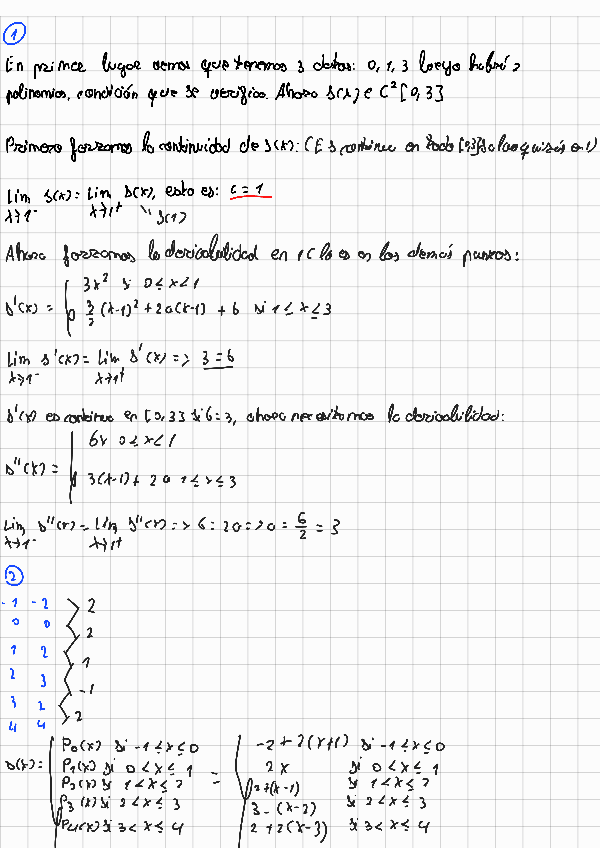 1
En primer lugar vemos que tenemos 3 datos: 0, 1, 3 luego habrá 2
polinomios, condición que se verifica. Ahora s(x) ∈ C²[0,3]
Primero forzamos la continuidad de s(x): (Es continua en todo [0,3] salvo quizás en 1)
lim s(x) = lim s(x), esto es: c = 1
x→1⁻ x→1⁺ s(1)
Ahora forzamos la derivabilidad en 1 (lo es en los demás puntos:
s'(x) = { 3x² si 0≤x<1
3/2 (x-1)² + 2a(x-1) + b si 1≤x≤3
lim s'(x) = lim s'(x) => 3 = b
x→1⁻ x→1⁺
s'(x) es continua en [0,3] si b=3, ahora necesitamos la derivabilidad:
s''(x) = { 6x 0≤x<1
3(x-1) + 2a 1≤x≤3
lim s''(x) = lim s''(x) => 6 = 2a => a = 6/2 = 3
x→1⁻ x→1⁺
2
-1 -2 2
0 0 2
1 2 1
2 3 -1
3 2 2
4 4
s(x) = { P₀(x) si -1≤x≤0 = { -2+2(x+1) si -1≤x≤0
P₁(x) si 0<x≤1 2x si 0<x≤1
P₂(x) si 1<x≤2 2+(x-1) si 1<x≤2
P₃(x) si 2<x≤3 3-(x-2) si 2<x≤3
P₄(x) si 3<x≤4 2+2(x-3) si 3<x≤4